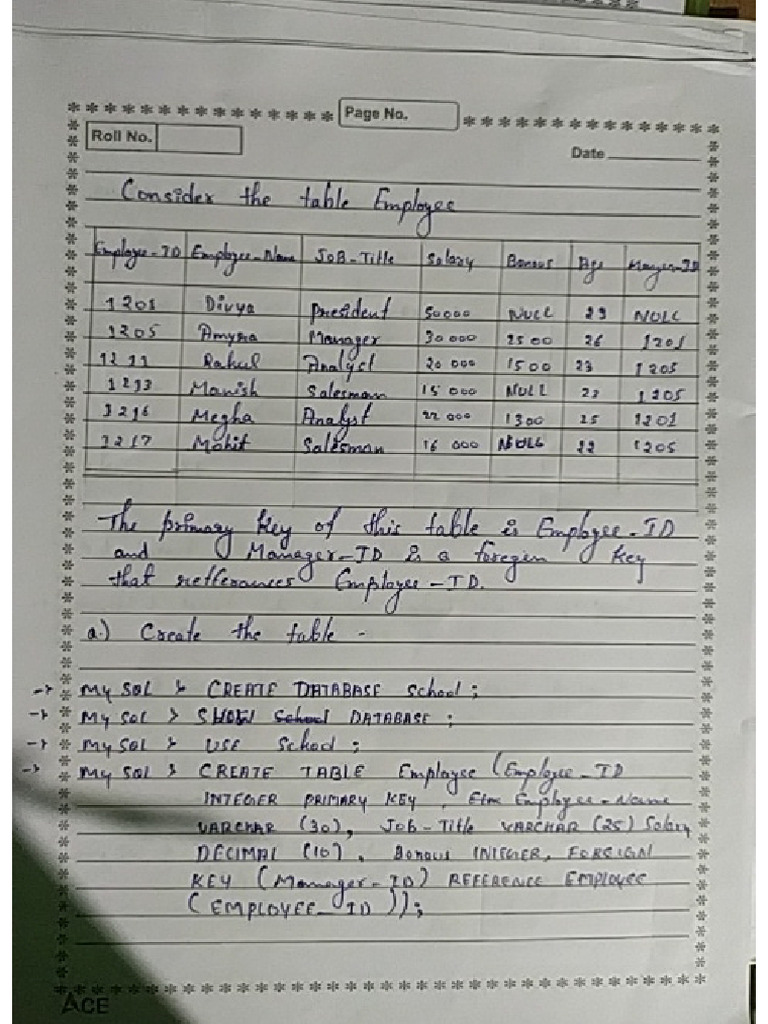 Page No.
Roll No.
Date
Consider the table Employee
Employee-ID Employee-Name JOB-Title Salary Bonous Age Manger-ID
1201 Divya president 50000 NULL 29 NULL
1205 Amyra Manager 30 000 2500 26 1201
1211 Rahul Analyst 20 000 1500 23 1205
1213 Manish Salesman 15 000 NULL 22 1205
1216 Megha Analyst 22 000 1300 25 1201
1217 Mohit Salesman 16 000 NULL 22 1205
The primary key of this table is Employee-ID
and Manager-ID is a foregen key
that refferances Employee-ID.
a.) Create the table -
→ My SQL > CREATE DATABASE School;
→ My SQL > SHOW DATABASE;
→ My SQL > USE School;
→ My SQL > CREATE TABLE Employee (Employee_ID
INTEGER PRIMARY KEY, Employee-Name
VARCHAR (30), Job-Title VARCHAR (25) Salary
DECIMAL (10), Bonous INTEGER, FOREIGN
KEY (Manager-ID) REFERENCE EMPLOYEE
(EMPLOYEE_ID));
ACE